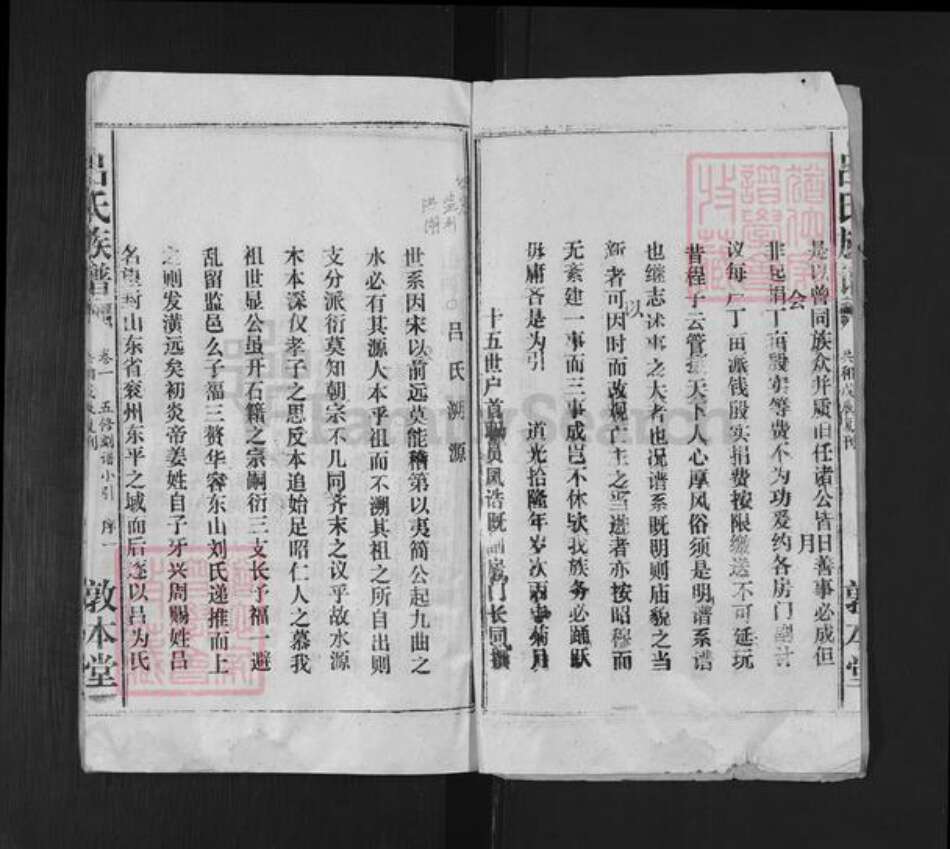 是以曾同族众并质旧任诸公皆曰善事必成但
非起捐丁亩殷实等费不为功爰约各房门副计
会
月
议每户丁亩派钱殷实捐费按限缴送不可延玩
昔程子云管摄天下人心厚风俗须是明谱系谱
也继志述事之大者也况谱系既明则庙貌之当
新者可因时而改观亡主之当进者亦按昭穆而
以
无紊建一事而三事成岂不休欤我族务必踊跃
毋庸吝是为引 道光拾陆年岁次丙申菊月
十五世户首职员凤诰既副房门长同撰
吕氏溯源
世系因宋以前远莫能稽第以夷简公起九曲之
水必有其源人本乎祖而不溯其祖之所自出则
支分派衍莫知朝宗不几同齐末之议乎故水源
木本深仪孝子之思反本追始足昭仁人之慕我
祖世显公虽开石籍之宗嗣衍三支长子福一避
乱留监邑么子福三赘华容东山刘氏递推而上
之则发潢远矣初炎帝姜姓自子牙兴周赐姓吕
名望封山东省衮州东平之域而后遂以吕为氏
吕氏族谱 卷一 五修刻谱小引 序一 敦本堂
吕氏族谱 共和戊辰复刊 敦本堂
FamilySearch